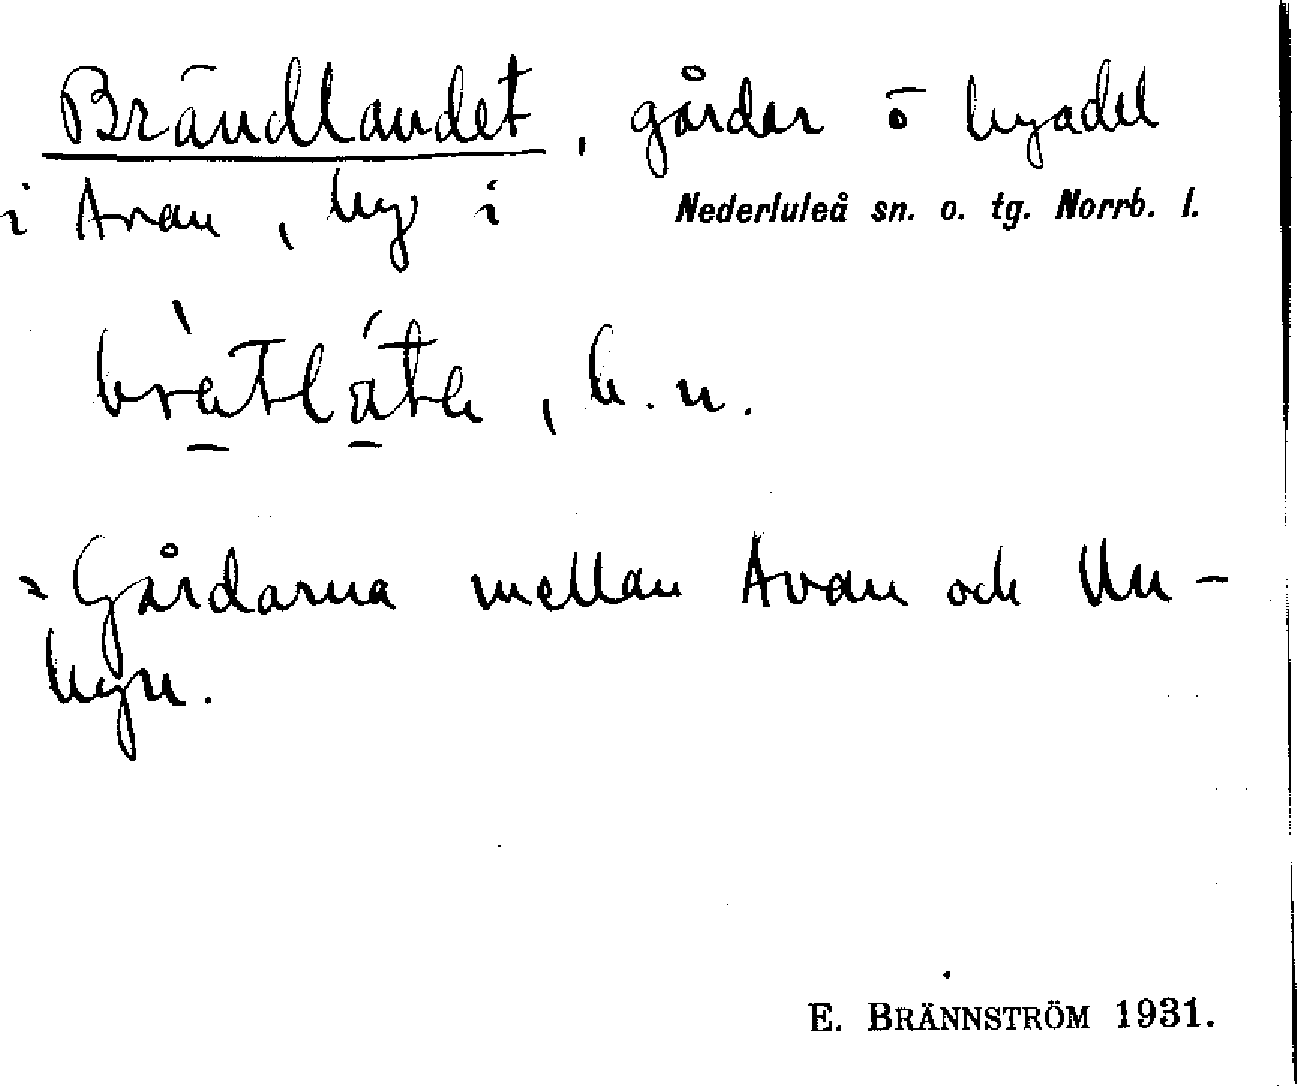 Brändlandet, gårdar ö byadel
i Avan, by i Nederluleå sn. o. tg. Norrb. l.
= Gårdarna mellan Avan och Un-
byn.
E. BRÄNNSTRÖM 1931.